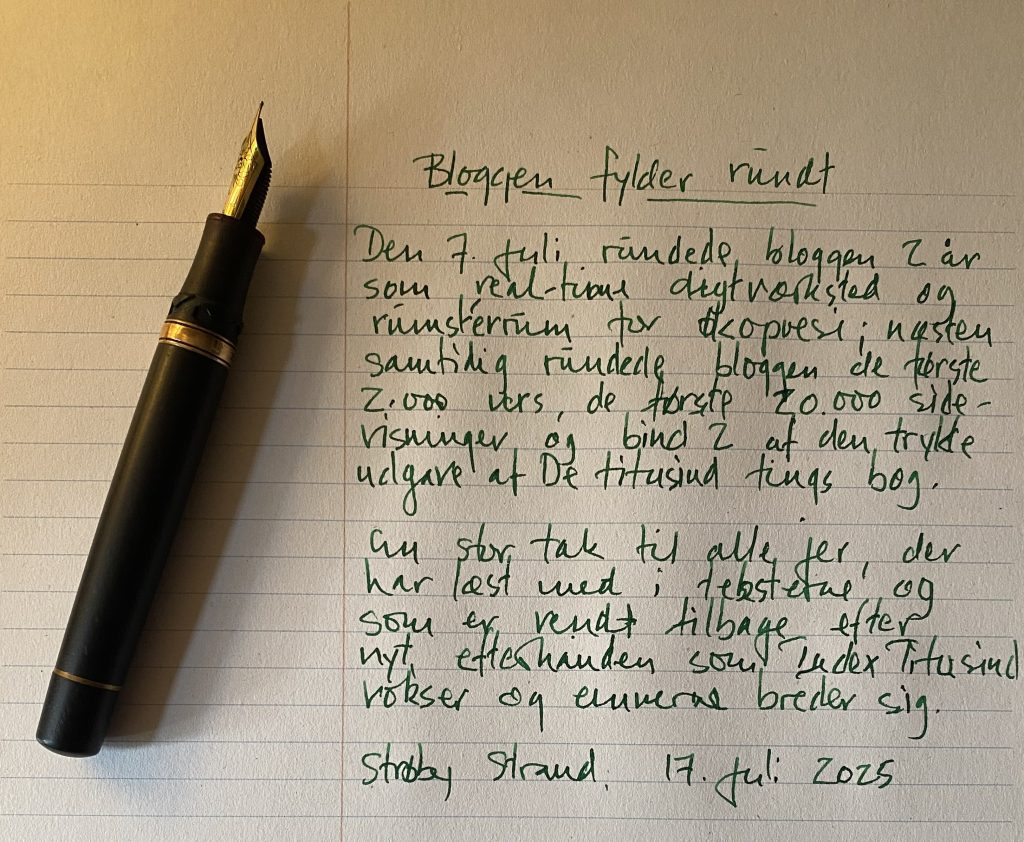 Bloggen fylder rundt
Den 7. juli rundede bloggen 2 år
som real-time digtværksted og
rumsterrum for økopoesi; næsten
samtidig rundede bloggen de første
2.000 vers, de første 20.000 side-
visninger og bind 2 af den trykte
udgave af De titusind tings bog.
En stor tak til alle jer, der
har læst med i teksterne og
som er vendt tilbage efter
nyt, efterhånden som Index Titusind
vokser og emnerne breder sig.
Strøby Strand, 17. juli 2025